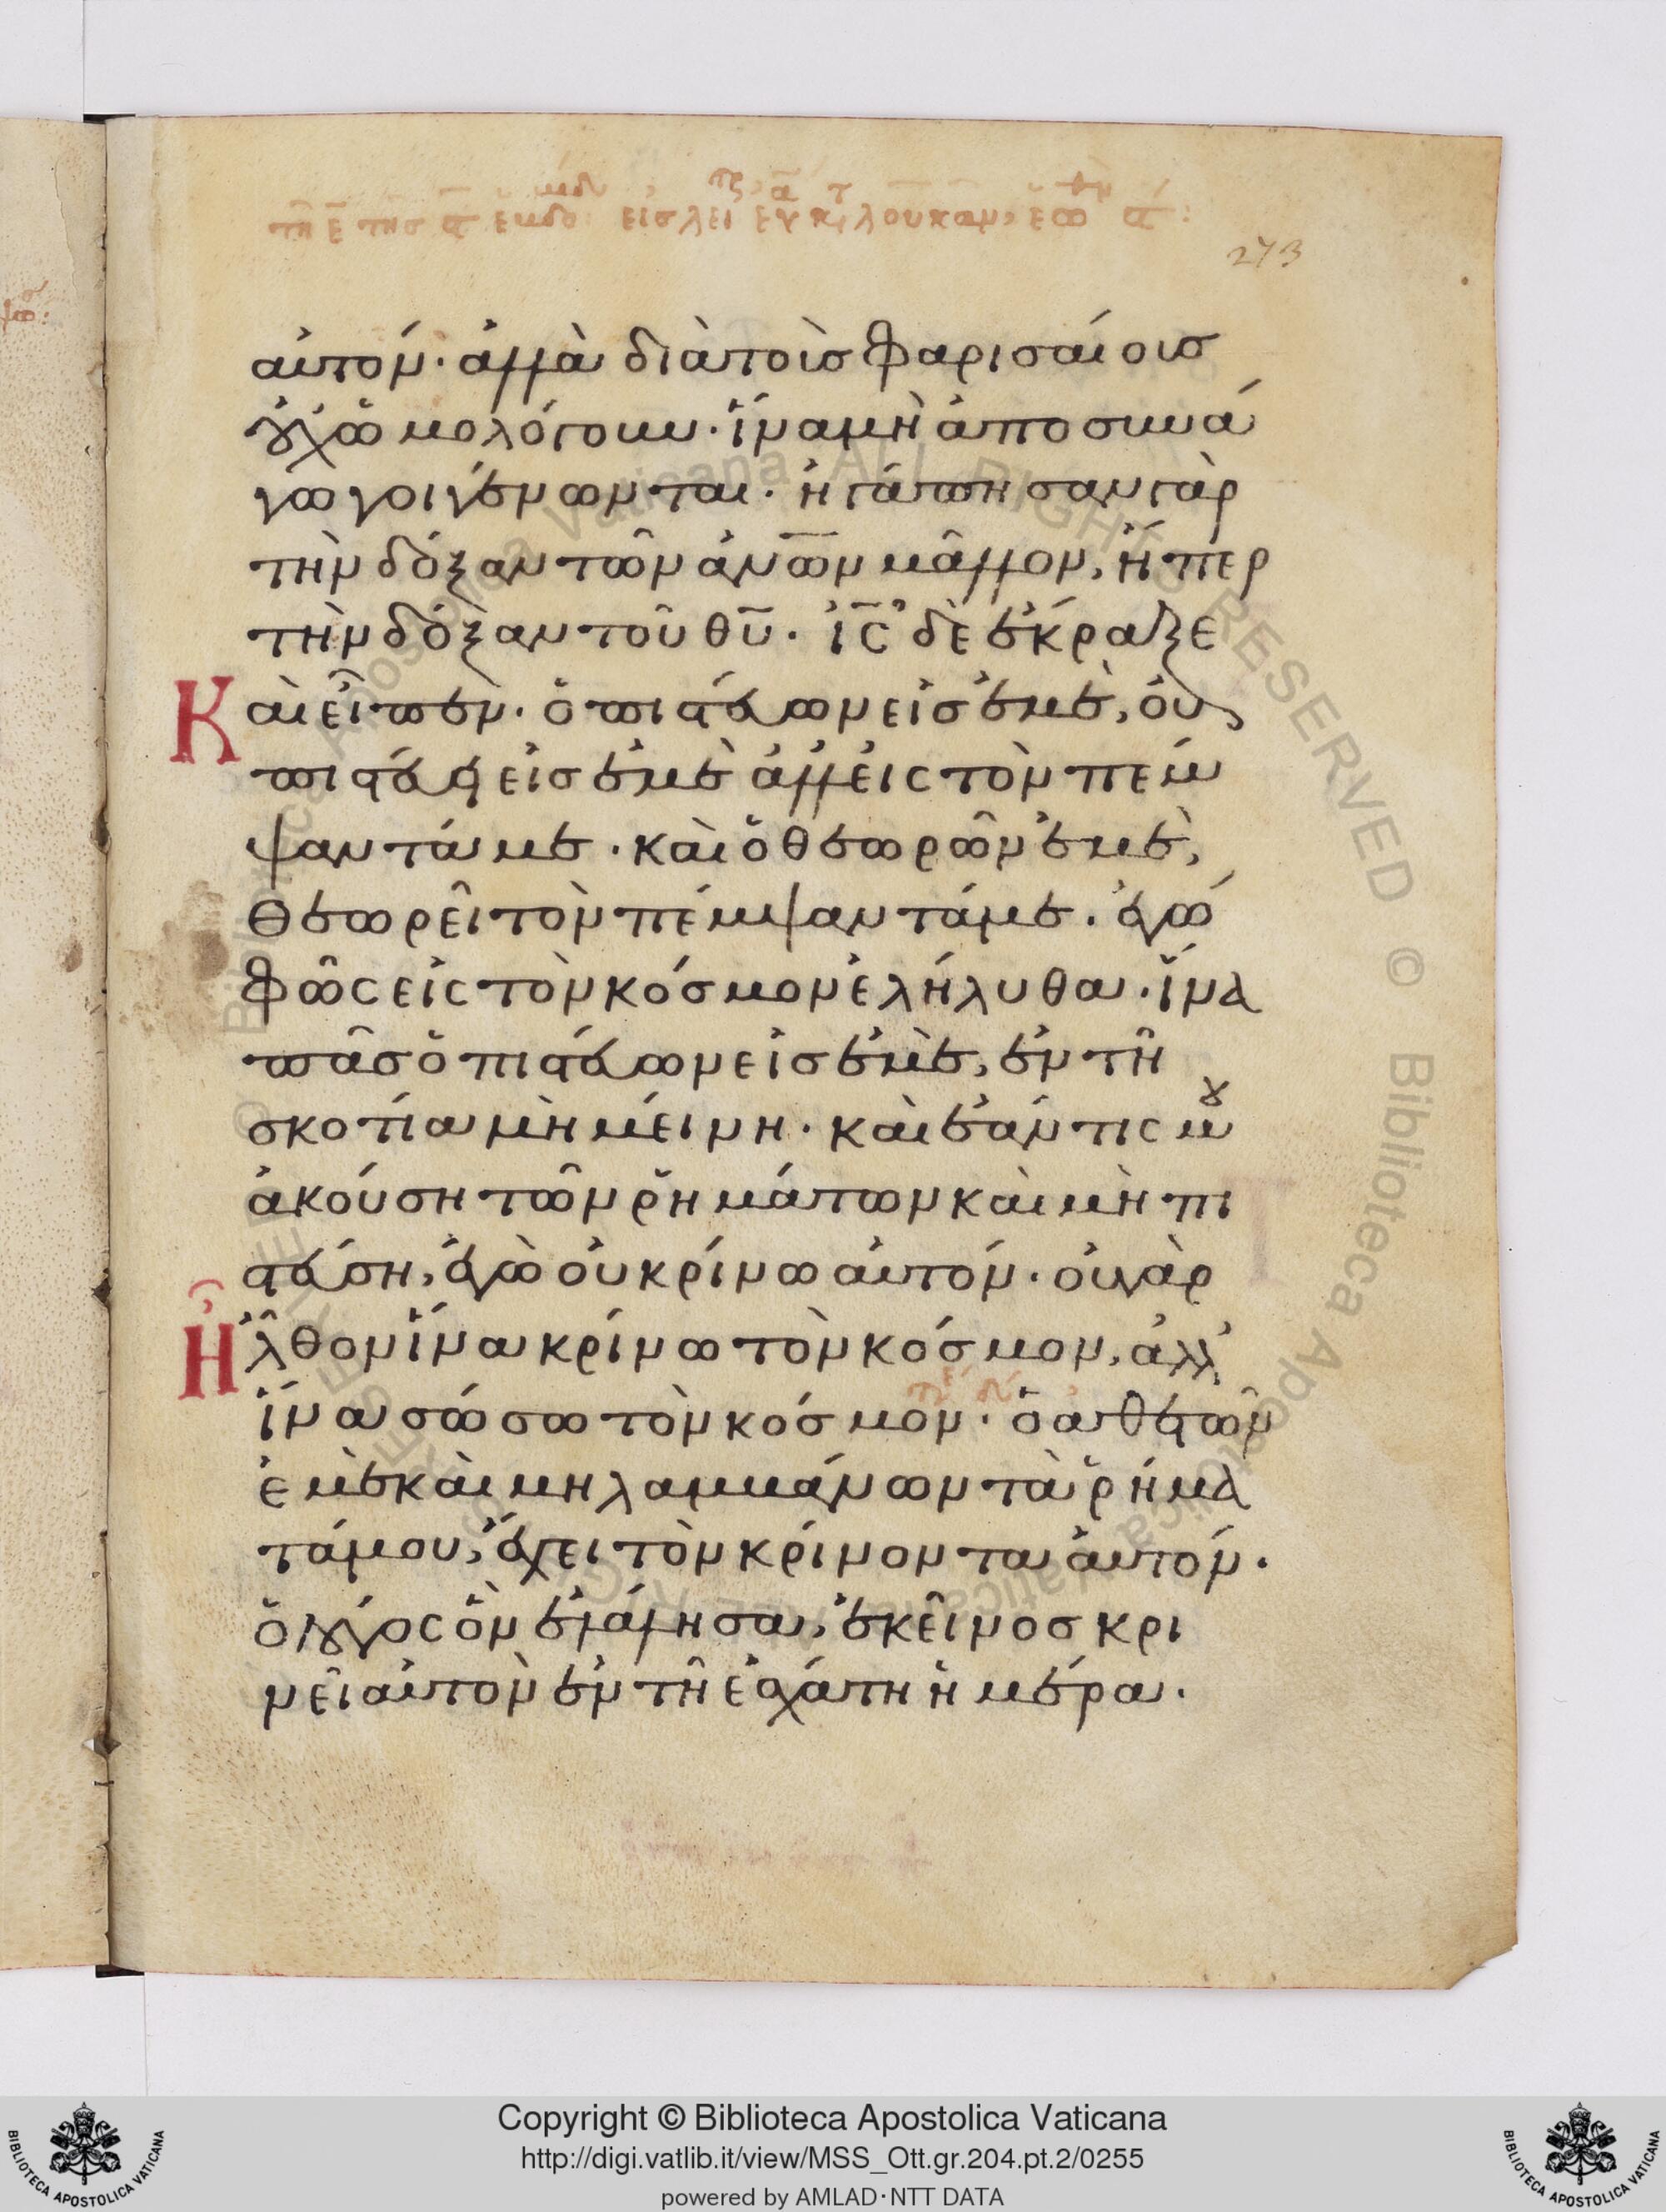 273
αὐτόν· ἀλλὰ διὰ τοὺς φαρισαίους
οὐχ ὡμολόγουν· ἵνα μὴ ἀποσυνά
γωγοι γένωνται· ἠγάπησαν γὰρ
τὴν δόξαν τῶν ἀν̅ω̅ν μᾶλλον, ἤπερ
τὴν δόξαν τοῦ θ̅υ̅· ἰ̅ς̅ δὲ ἔκραξε
Καὶ εἶπεν· ὁ πιστεύων εἰς ἐμὲ, οὐ
πιστεύει εἰς ἐμὲ ἀλλ' εἰς τὸν πέμ
ψαντά με· καὶ ὁ θεωρῶν ἐμὲ,
θεωρεῖ τὸν πέμψαντά με· ἐγώ
φῶς εἰς τὸν κόσμον ἐλήλυθα· ἵνα
πᾶς ὁ πιστεύων εἰς ἐμὲ, ἐν τῇ
σκοτία μὴ μείνη· καὶ ἐάν τις μου
ἀκούση τῶν ῥημάτων καὶ μὴ πι
στεύση, ἐγὼ οὐ κρίνω αὐτόν· οὐ γὰρ
Ἦλθον ἵνα κρίνω τὸν κόσμον, ἀλλ'
ἵνα σώσω τὸν κόσμον· ὁ ἀθετῶν
ἐμὲ καὶ μὴ λαμβάνων τὰ ῥήμα
τά μου, ἔχει τὸν κρίνοντα αὐτόν·
ὁ λόγος ὃν ἐλάλησα, ἐκεῖνος κρι
νεῖ αὐτὸν ἐν τῇ ἐσχάτη ἡμέρα·
Copyright © Biblioteca Apostolica Vaticana
http://digi.vatlib.it/view/MSS_Ott.gr.204.pt.2/0255
powered by AMLAD·NTT DATA
BIBLIOTECA APOSTOLICA VATICANA
BIBLIOTECA APOSTOLICA VATICANA